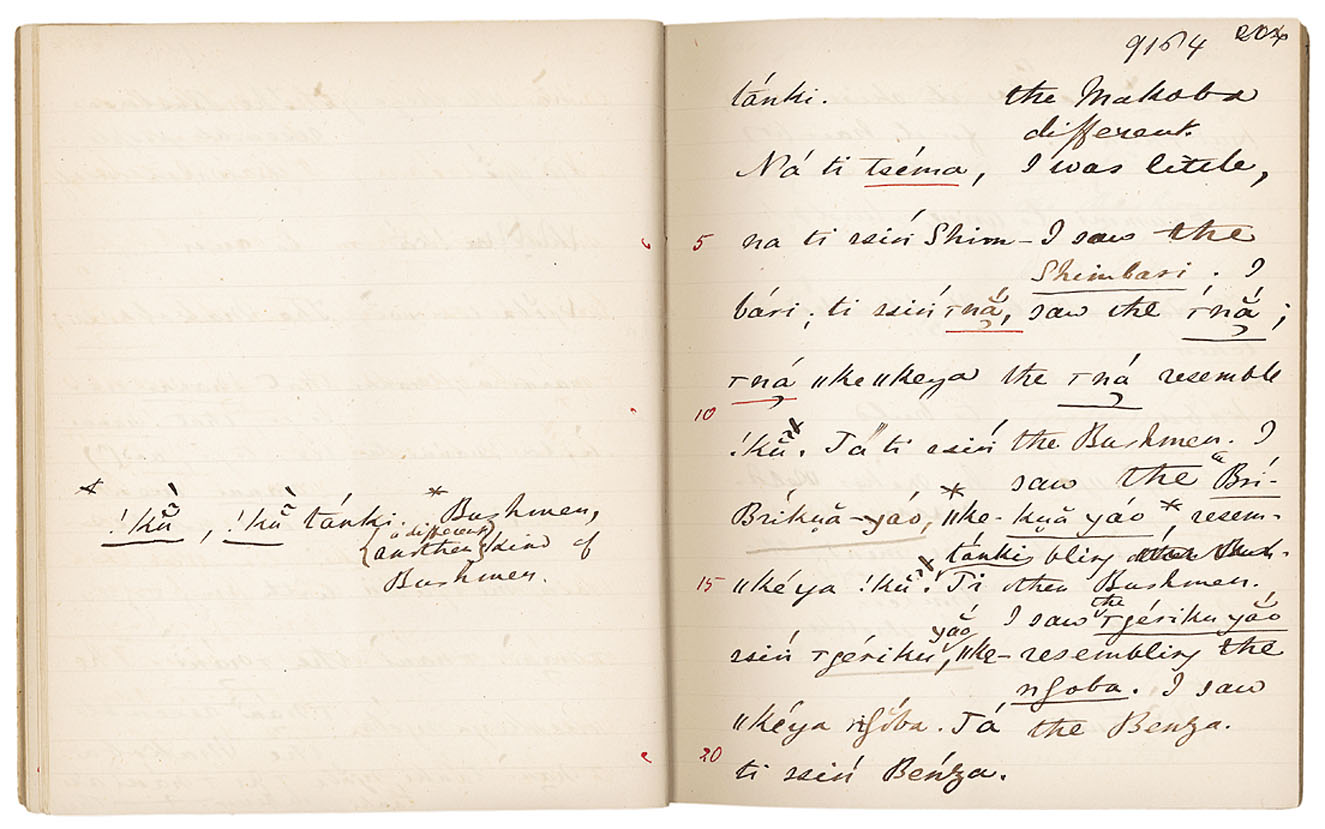 !kṹ, !kṹ tánki. * Bushmen,
{a different
{another} kind of
Bushmen.
9164 204
tánki. the Makoba
different.
Ná ti tséma, I was little,
5 na ti ssiń Shim- I saw the
Shimbari. I
bári; ti ssiń Ꞇnắ, saw the Ꞇnắ;
Ꞇná ǁkeǁkeya the Ꞇná resemble
10
!kṹ. Tá ti ssiń the Bushmen. I
saw the Brí-
Bríkuă-yáo, * ǁke- kuă yáo *, resem-
tánki bling
15 ǁkéya !kṹ. Ti other Bushmen.
I saw the Ꞇgériku yáo
yáo
ssiń Ꞇgériku, ǁke- resembling the
ngoba. I saw
ǁkéya ngóba. Tá the Benza.
20
ti ssiń Beńza.